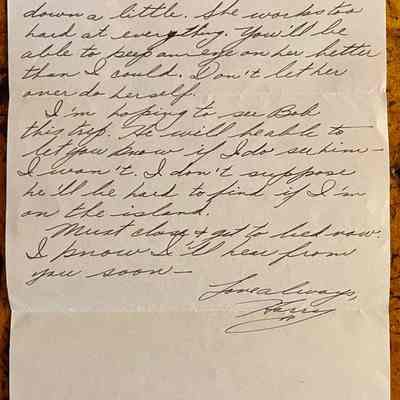 down a little. She works too
hard at everything. You'll be
able to keep an eye on her better
than I could. Don't let her
over do herself.
I'm hoping to see Bob
this trip. He will be able to
let you know if I do see him—
I won't. I don't suppose
he'll be hard to find if I'm
on the island.
Must close & get to bed now.
I know I'll hear from
you soon—
Love always,
Harry